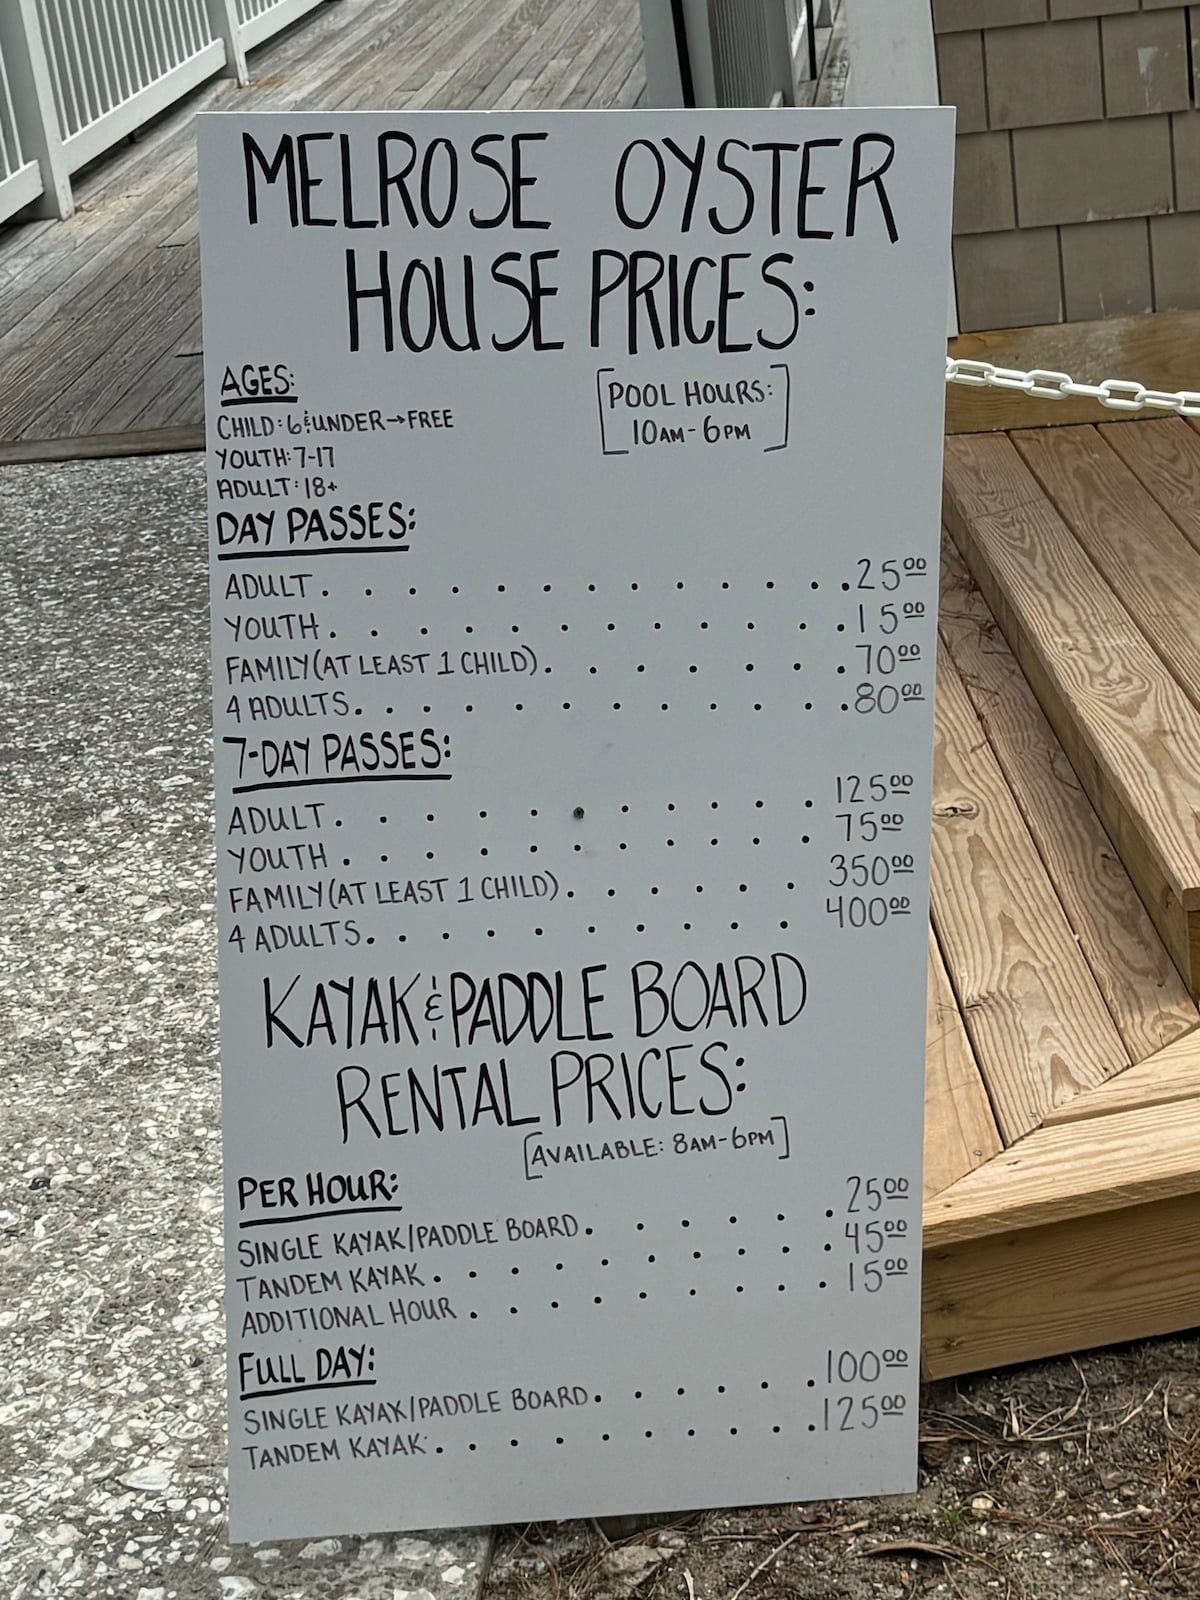 MELROSE OYSTER
HOUSE PRICES:
AGES:
CHILD: 6 & UNDER → FREE
YOUTH: 7-17
ADULT: 18+
[POOL HOURS:
10AM - 6PM]
DAY PASSES:
ADULT. . . . . . . . . . . . .25⁰⁰
YOUTH. . . . . . . . . . . . .15⁰⁰
FAMILY (AT LEAST 1 CHILD). . . . . . . .70⁰⁰
4 ADULTS. . . . . . . . . . . .80⁰⁰
7-DAY PASSES:
ADULT. . . . . . . . . . . 125⁰⁰
YOUTH . . . . . . . . . . . 75⁰⁰
FAMILY (AT LEAST 1 CHILD). . . . . . 350⁰⁰
4 ADULTS. . . . . . . . . . 400⁰⁰
KAYAK & PADDLE BOARD
RENTAL PRICES:
[AVAILABLE: 8AM - 6PM]
PER HOUR:
SINGLE KAYAK/PADDLE BOARD. . . . . . .25⁰⁰
TANDEM KAYAK. . . . . . . . . .45⁰⁰
ADDITIONAL HOUR . . . . . . . . .15⁰⁰
FULL DAY:
SINGLE KAYAK/PADDLE BOARD. . . . . . .100⁰⁰
TANDEM KAYAK. . . . . . . . . . .125⁰⁰